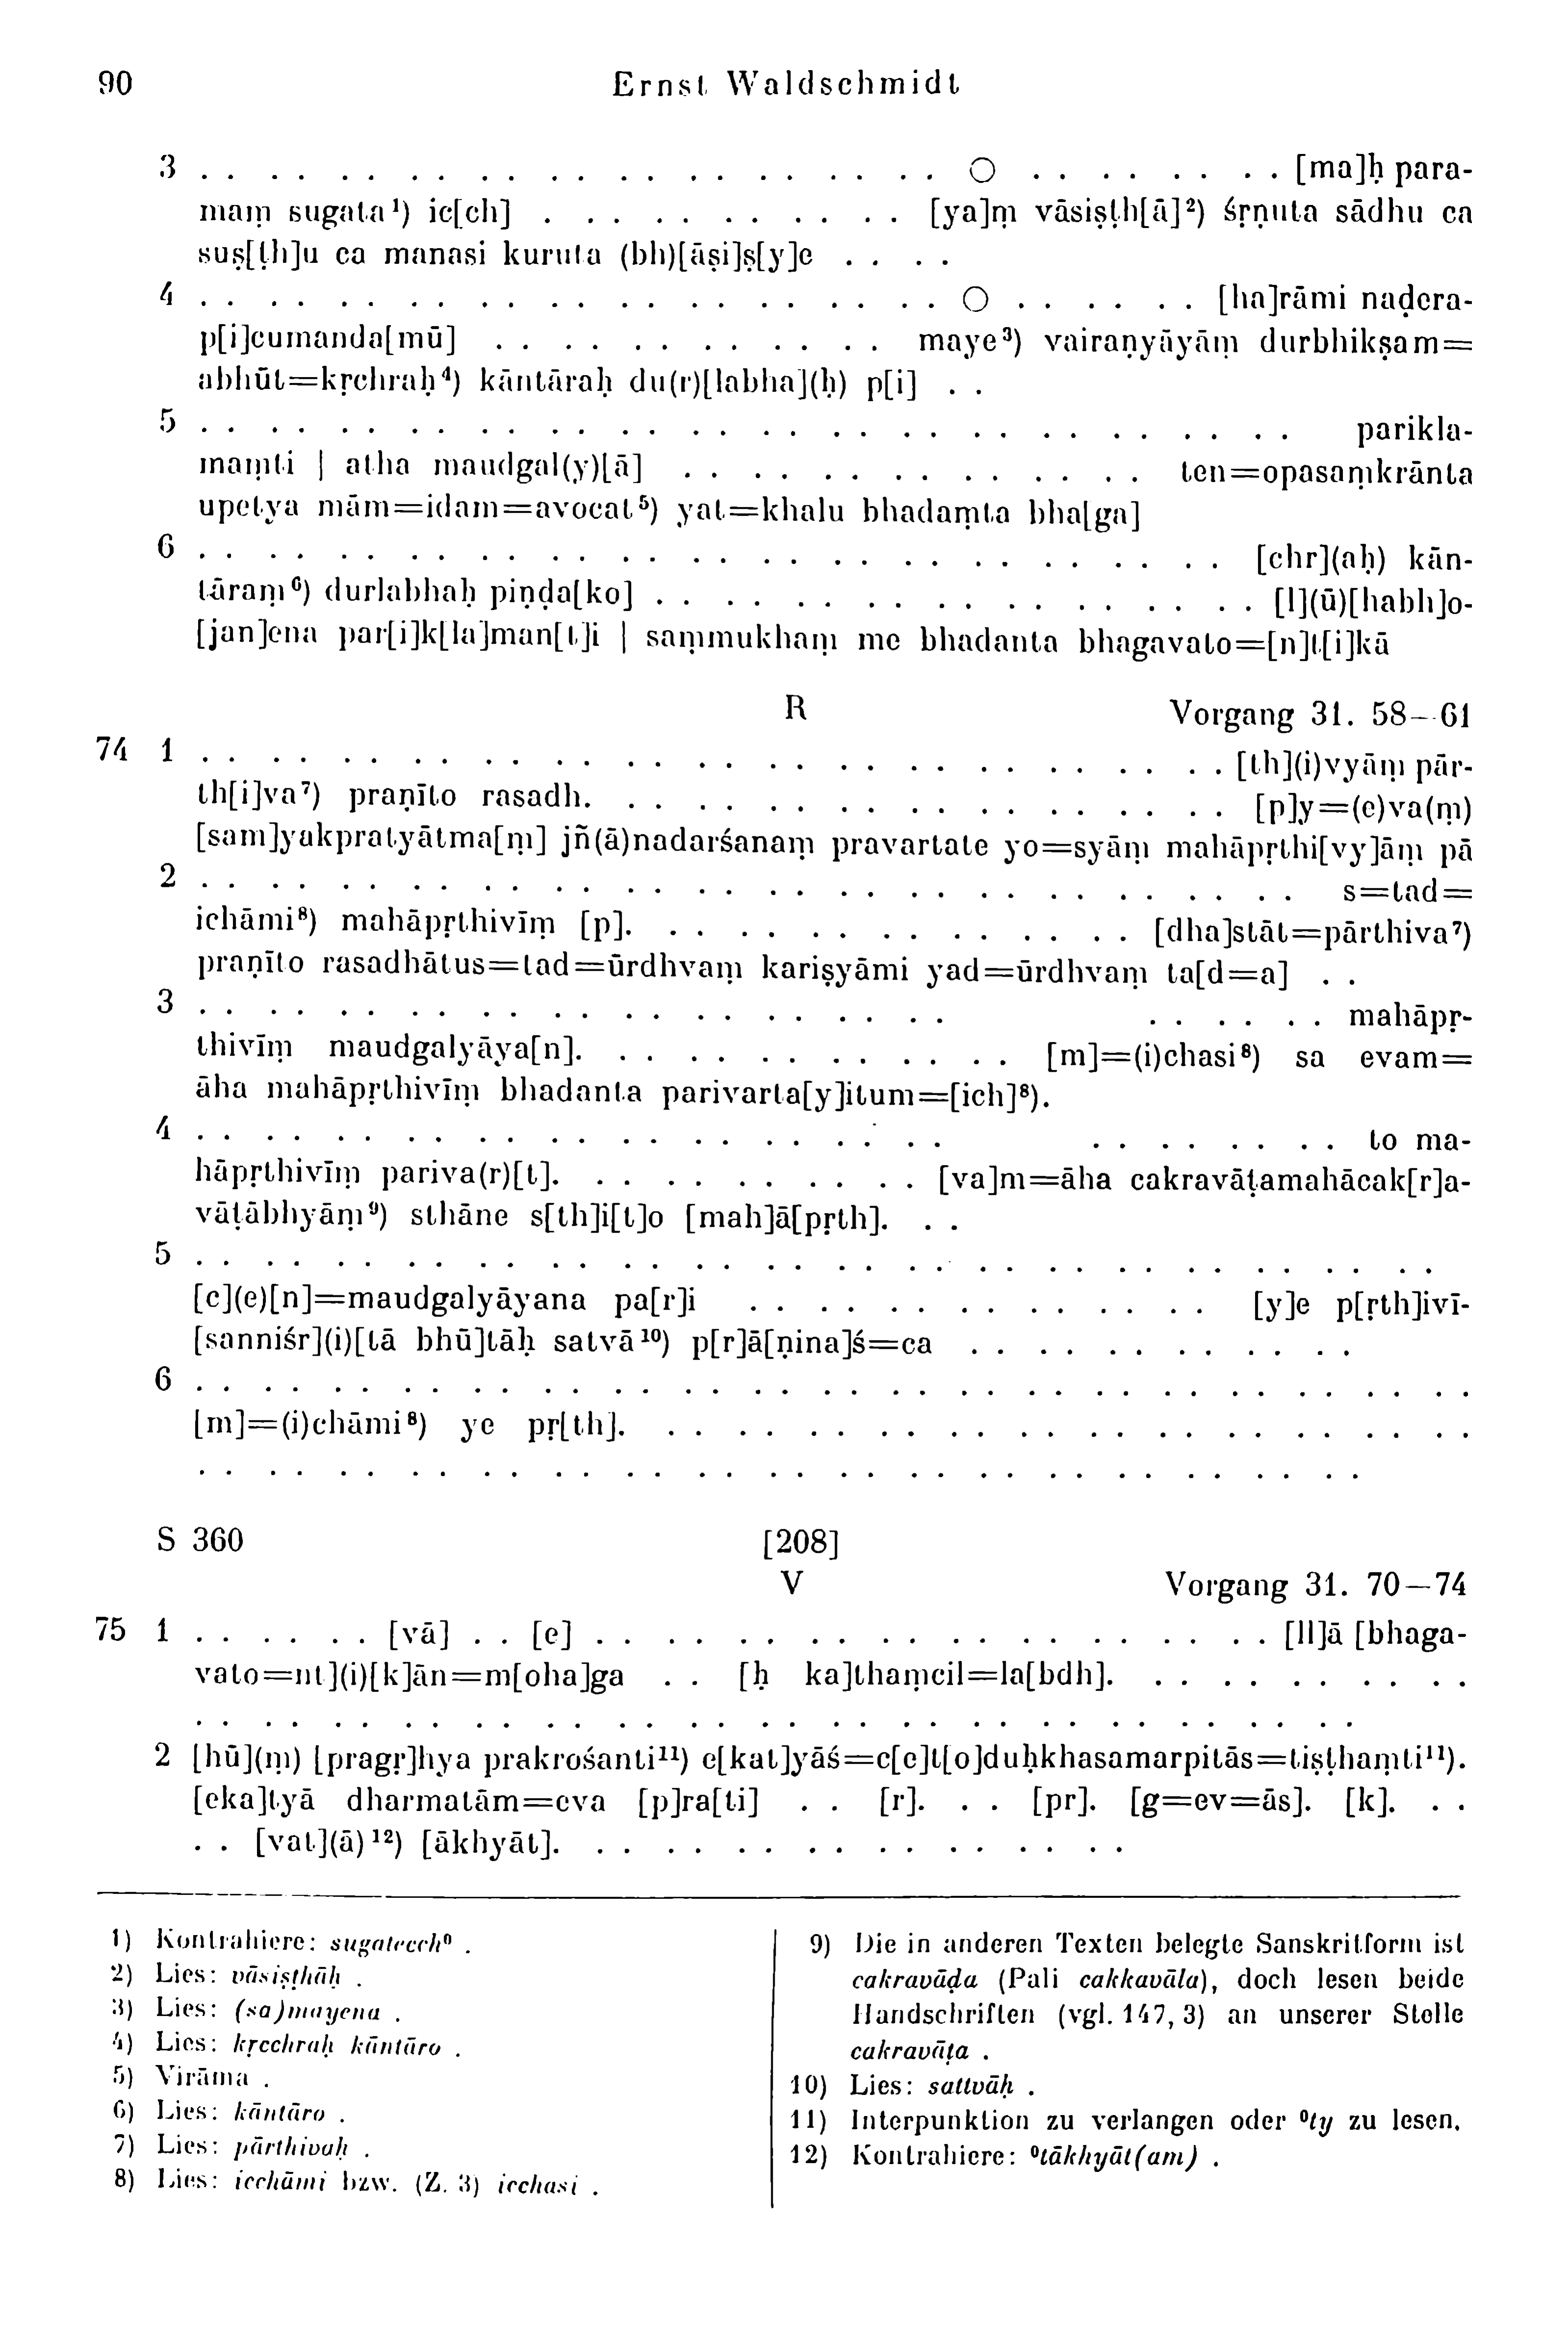 90 Ernst Waldschmidt
3 . . . . . . . . . . . . . . . . . . . . . . ○ . . . . . . . . [ma]ḥ para-
maṃ sugata¹) ic[ch] . . . . . . . . . . . [ya]ṃ vāsiṣṭh[ā]²) śṛṇuta sādhu ca
suṣ[ṭh]u ca manasi kuruta (bh)[āṣi]ṣ[y]e . . . .
4 . . . . . . . . . . . . . . . . . . . . . . ○ . . . . . . [ha]rāmi naḍera-
p[i]cumanda[mū] . . . . . . . . . . . . maye³) vairaṇyāyāṃ durbhikṣam=
abhūt=kṛchraḥ⁴) kāntāraḥ du(r)[labha](ḥ) p[i] . .
5 . . . . . . . . . . . . . . . . . . . . . . . . . . . . . . . . parikla-
maṃti | atha maudgal(y)[ā] . . . . . . . . . . . . . . ten=opasaṃkrānta
upetya mām=idam=avocat⁵) yat=khalu bhadaṃta bha[ga]
6 . . . . . . . . . . . . . . . . . . . . . . . . . . . . . . [chr](aḥ) kān-
tāraṃ⁶) durlabhaḥ piṇḍa[ko] . . . . . . . . . . . . . . . . . . [l](ū)[habh]o-
[jan]ena par[i]k[la]man[t]i | saṃmukhaṃ me bhadanta bhagavato=[n]t[i]kā
R Vorgang 31. 58—61
74 1 . . . . . . . . . . . . . . . . . . . . . . . . . . . . . . [th](i)vyāṃ pār-
th[i]va⁷) praṇīto rasadh. . . . . . . . . . . . . . . . . . . [p]y=(e)va(ṃ)
[sam]yakpratyātma[ṃ] jñ(ā)nadarśanaṃ pravartate yo=syāṃ mahāpṛthi[vy]āṃ pā
2 . . . . . . . . . . . . . . . . . . . . . . . . . . . . . . . . s=tad=
ichāmi⁸) mahāpṛthivīṃ [p]. . . . . . . . . . . . . . . [dha]stāt=pārthiva⁷)
praṇīto rasadhātus=tad=ūrdhvaṃ kariṣyāmi yad=ūrdhvaṃ ta[d=a] . .
3 . . . . . . . . . . . . . . . . . . . . . . . . . . . . mahāpṛ-
thivīṃ maudgalyāya[n]. . . . . . . . . . . . . [m]=(i)chasi⁸) sa evam=
āha mahāpṛthivīṃ bhadanta parivarta[y]itum=[ich]⁸).
4 . . . . . . . . . . . . . . . . . . . . . . . . . . . . . . to ma-
hāpṛthivīṃ pariva(r)[t]. . . . . . . . . . . [va]m=āha cakravāṭamahācak[r]a-
vāṭābhyāṃ⁹) sthāne s[th]i[t]o [mah]ā[pṛth]. . .
5 . . . . . . . . . . . . . . . . . . . . . . . . . . . . . . . . . . . .
[c](e)[n]=maudgalyāyana pa[r]i . . . . . . . . . . . . . . [y]e p[ṛth]ivī-
[sanniśr](i)[tā bhū]tāḥ satvā¹⁰) p[r]ā[ṇina]ś=ca . . . . . . . . . . . .
6 . . . . . . . . . . . . . . . . . . . . . . . . . . . . . . . . . . . . .
[m]=(i)chāmi⁸) ye pṛ[th]. . . . . . . . . . . . . . . . . . . . . . . . .
. . . . . . . . . . . . . . . . . . . . . . . . . . . . . . . . . .
S 360 [208]
V Vorgang 31. 70—74
75 1 . . . . . . [vā] . . [e] . . . . . . . . . . . . . . . . . . . . [ll]ā [bhaga-
vato=nt](i)[k]ān=m[oha]ga . . [ḥ ka]thaṃcil=la[bdh]. . . . . . . . . . .
. . . . . . . . . . . . . . . . . . . . . . . . . . . . . . . . . .
2 [hū](ṃ) [pragṛ]hya prakrośanti¹¹) e[kat]yāś=c[e]t[o]duḥkhasamarpitās=tiṣṭhaṃti¹¹).
[eka]tyā dharmatām=eva [p]ra[ti] . . [r]. . . [pr]. [g=ev=ās]. [k]. . .
. . [vat](ā)¹²) [ākhyāt]. . . . . . . . . . . . . . . . .
1) Kontrahiere: sugatecch⁰ .
2) Lies: vāsiṣṭhāḥ .
3) Lies: (sa)mayena .
4) Lies: kṛcchraḥ kāntāro .
5) Virāma .
6) Lies: kāntāro .
7) Lies: pārthivaḥ .
8) Lies: icchāmi bzw. (Z. 3) icchasi .
9) Die in anderen Texten belegte Sanskritform ist
cakravāḍa (Pali cakkavāla), doch lesen beide
Handschriften (vgl. 147, 3) an unserer Stelle
cakravāṭa .
10) Lies: sattvāḥ .
11) Interpunktion zu verlangen oder ⁰ty zu lesen.
12) Kontrahiere: ⁰tākhyāt(am) .